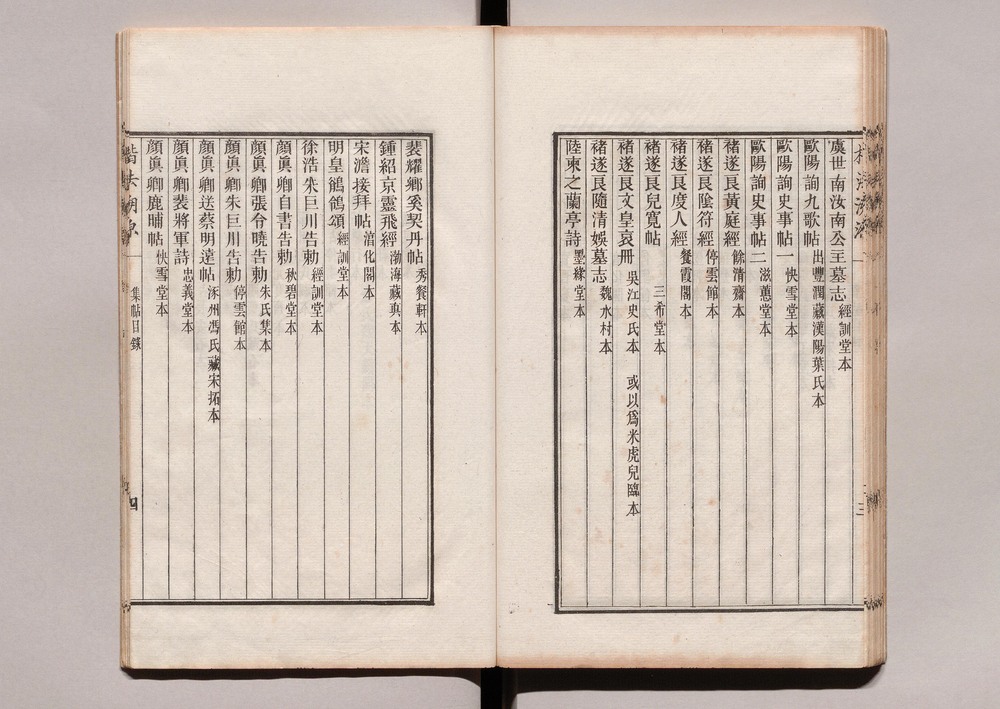 虞世南汝南公主墓志 經訓堂本
歐陽詢九歌帖 出豐潤藏漢陽葉氏本
歐陽詢史事帖一 快雪堂本
歐陽詢史事帖二 滋蕙堂本
褚遂良黃庭經 餘清齋本
褚遂良陰符經 停雲館本
褚遂良度人經 餐霞閣本
褚遂良兒寬帖 三希堂本
褚遂良文皇哀册 吳江史氏本 或以爲米虎兒臨本
褚遂良隨清娛墓志 魏水村本
陸柬之蘭亭詩 墨緣堂本
三
裴耀卿奚契丹帖 秀餐軒本
鍾紹京靈飛經 渤海藏眞本
宋儋接拜帖 淳化閣本
明皇鶺鴒頌 經訓堂本
徐浩朱巨川告勅 經訓堂本
顏眞卿自書告勅 秋碧堂本
顏眞卿張令曉告勅 朱氏集本
顏眞卿朱巨川告勅 停雲館本
顏眞卿送蔡明遠帖 涿州馮氏藏宋拓本
顏眞卿裴將軍詩 忠義堂本
顏眞卿鹿脯帖 快雪堂本
楷法溯源 集帖目錄 四